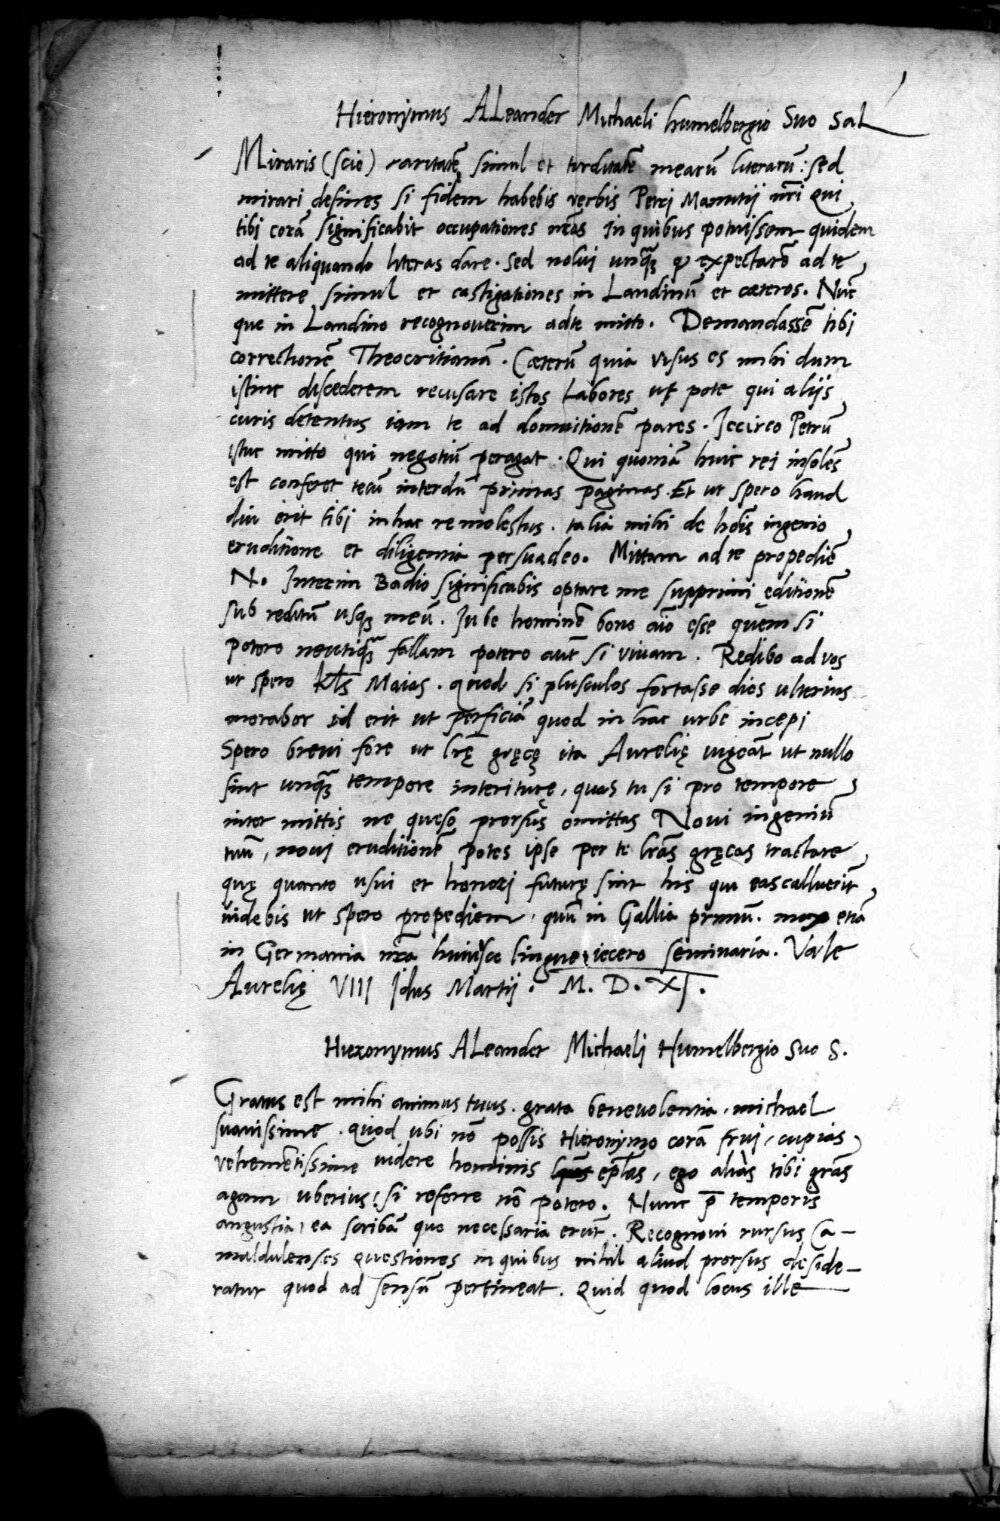 Hieronymus ALeander Michaeli humelbergio Suo SaL
Miraris (scio) raritatē simul et tarditatē mearū literarū: sed
mirari desines si fidem habebis verbis Petri Manutij nr̄i qui
tibi corā significabit occupationes meās In quibus potuissem quidem
ad te aliquando literas dare. Sed nolui unqꝫ expectare ad te
mittere simul et castigationes in Landinū et cæteros. Nūc
que in Landino recognoverim ad te mitto. Demandassē tibi
correctionē Theocritianā. Cæterū quia visus es mihi dum
istinc discederem recusare istos Labores ut pote qui alijs
curis detentus iam te ad domuitionē pares. Iccirco Petrū
istuc mitto qui negotiū peragat. Qui quoniā huic rei insolēs
est conferet tecū interdū primas paginas. Et ut spero haud
diu erit tibi in hac re molestus. talia mihi de hoīs ingenio
eruditione et diligentia persuadeo. Mittam ad te propediē
N. Interim Badio significabis optare me supprimi ęditionē
sub reditū usqꝫ meū. Iube hominē bono aīo esse quem si
potero neutiqꝫ fallam potero aūt si vivam. Redibo ad vos
ut spero kl̄s Maias. quod si plusculos fortasse dies ulterius
morabor id erit ut perficiā quod in hac urbe incepi
Spero brevi fore ut lr̄ę gręcę ita Aurelię vigeāt ut nullo
sint unqꝫ tempore interiturę, quas tu si pro tempore
inter mittis ne queso prorsus omittas Novi ingeniū
tuū, novi eruditionē potes ipse per te lr̄as gręcas tractare
quę quanto usui et honori futurę sint his qui eas calluerīt
videbis ut spero propediem, quū in Gallia primū. mox etiā
in Germania nr̄a huiusce linguę iecero seminaria. Vale
Aurelię VIII Idus Martij. M. D. XI.
Hieronymus ALeander Michaelj Humelbergio Suo S.
Gratus est mihi animus tuus. grata benevolentia. michael
suavissime. quod ubi nō possis Hieronymo corā frui, cupias
vehemētissime videre hominis epl̄as, ego aliàs tibi gr̄as
agam uberius: si referre nō potero. Nunc p̄ temporis
angustia, ea scribā que necessaria erūt. Recognovi rursus Ca-
maldulenses questiones in quibus nihil aliud prorsus deside-
ratur quod ad sensū pertineat. Quid quod locus ille